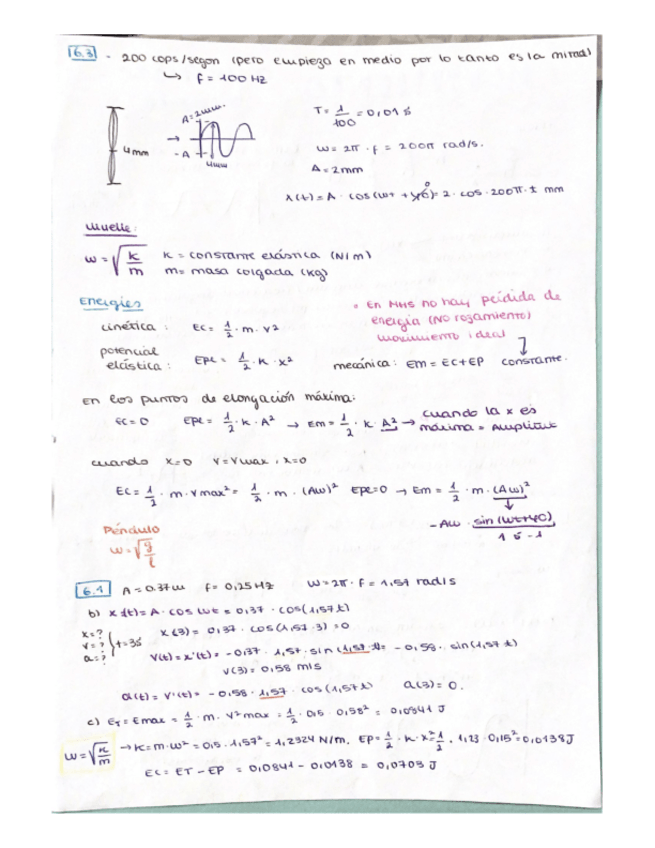 6.3 - 200 cops/segon (pero empieza en medio por lo tanto es la mitad)
↳ f = 100 Hz
A=2mm.
4mm → -A
4mm
T = 1/100 = 0,01 s
ω = 2π · f = 200π rad/s.
A = 2mm
x(t) = A · cos(ωt + φ0) 0 = 2 · cos · 200π · t mm
Muelle:
ω = √(k/m) k = constante elástica (N/m)
m = masa colgada (kg)
Energies
cinética: EC = 1/2 · m · v²
potencial elástica: EPE = 1/2 · k · x²
* En MHS no hay pérdida de
energia (NO rozamiento)
movimiento ideal
mecánica: Em = EC+EP constante.
En los puntos de elongación máxima:
EC=0 EPE = 1/2 · k · A² → Em = 1/2 · k · A² → cuando la x es
máxima = Amplitud
cuando x=0 v=vmax, x=0
EC = 1/2 · m · vmax² = 1/2 · m · (Aω)² EPE=0 → Em = 1/2 · m · (Aω)²
- Aω · sin(ωt+φ0)
1 ó -1
Péndulo
ω = √(g/l)
6.1 A = 0.37m f = 0,25 Hz ω = 2π · f = 1,57 rad/s
b) x(t) = A · cos ωt = 0,37 · cos(1,57t)
x=?
v=?
a=?
} t=3s
x(3) = 0,37 · cos(1,57·3) = 0
v(t) = x'(t) = -0,37 · 1,57 · sin(1,57·t) = -0,58 · sin(1,57t)
v(3) = 0,58 m/s
a(t) = v'(t) = -0,58 · 1,57 · cos(1,57t) a(3) = 0.
c) ET = Emax = 1/2 · m · v²max = 1/2 · 0,5 · 0,58² = 0,0841 J
ω = √(k/m) → k = m·ω² = 0,5 · 1,57² = 1,2324 N/m. EP = 1/2 · k · x² = 1/2 · 1,23 · 0,15² = 0,0138 J
EC = ET - EP = 0,0841 - 0,0138 = 0,0703 J